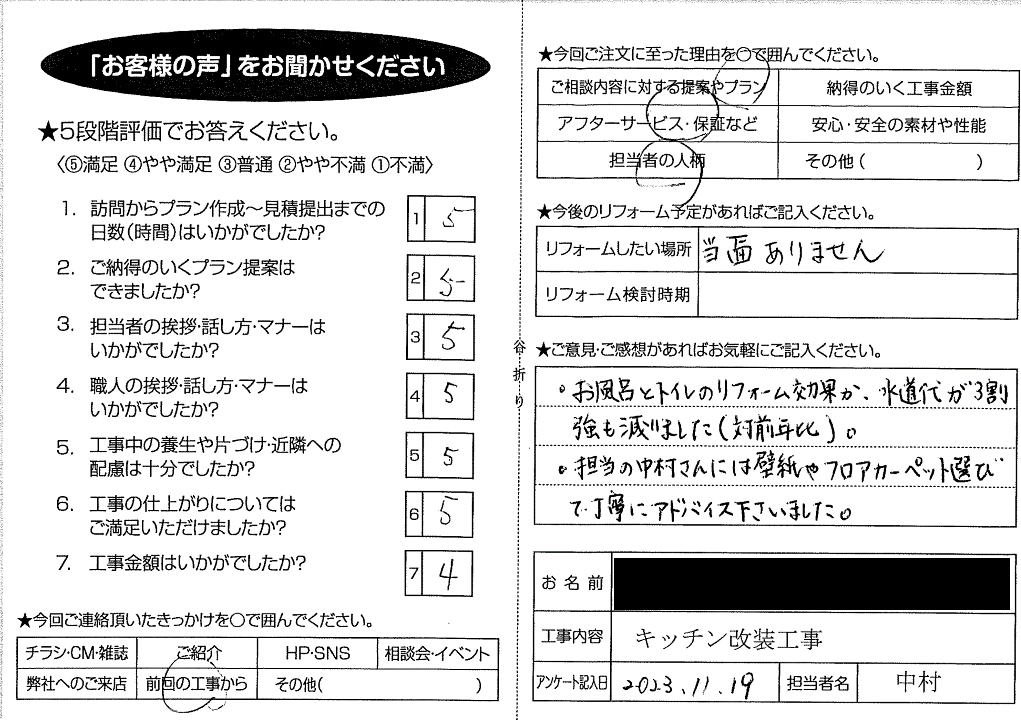 「お客様の声」をお聞かせください
★5段階評価でお答えください。
〈⑤満足 ④やや満足 ③普通 ②やや不満 ①不満〉
1. 訪問からプラン作成〜見積提出までの
日数(時間)はいかがでしたか?
1 5
2. ご納得のいくプラン提案は
できましたか?
2 5
3. 担当者の挨拶・話し方・マナーは
いかがでしたか?
3 5
4. 職人の挨拶・話し方・マナーは
いかがでしたか?
4 5
5. 工事中の養生や片づけ・近隣への
配慮は十分でしたか?
5 5
6. 工事の仕上がりについては
ご満足いただけましたか?
6 5
7. 工事金額はいかがでしたか?
7 4
★今回ご連絡頂いたきっかけを○で囲んでください。
チラシ・CM・雑誌 ご紹介 HP・SNS 相談会・イベント
弊社へのご来店 前回の工事から その他( )
谷折り
★今回ご注文に至った理由を○で囲んでください。
ご相談内容に対する提案やプラン 納得のいく工事金額
アフターサービス・保証など 安心・安全の素材や性能
担当者の人柄 その他( )
★今後のリフォーム予定があればご記入ください。
リフォームしたい場所 当面ありません
リフォーム検討時期
★ご意見・ご感想があればお気軽にご記入ください。
。お風呂とトイレのリフォーム効果か、水道代が3割
強も減りました(対前年比)。
。担当の中村さんには壁紙やフロアカーペット選び
で丁寧にアドバイス下さいました。
お名前
工事内容 キッチン改装工事
アンケート記入日 2023.11.19 担当者名 中村